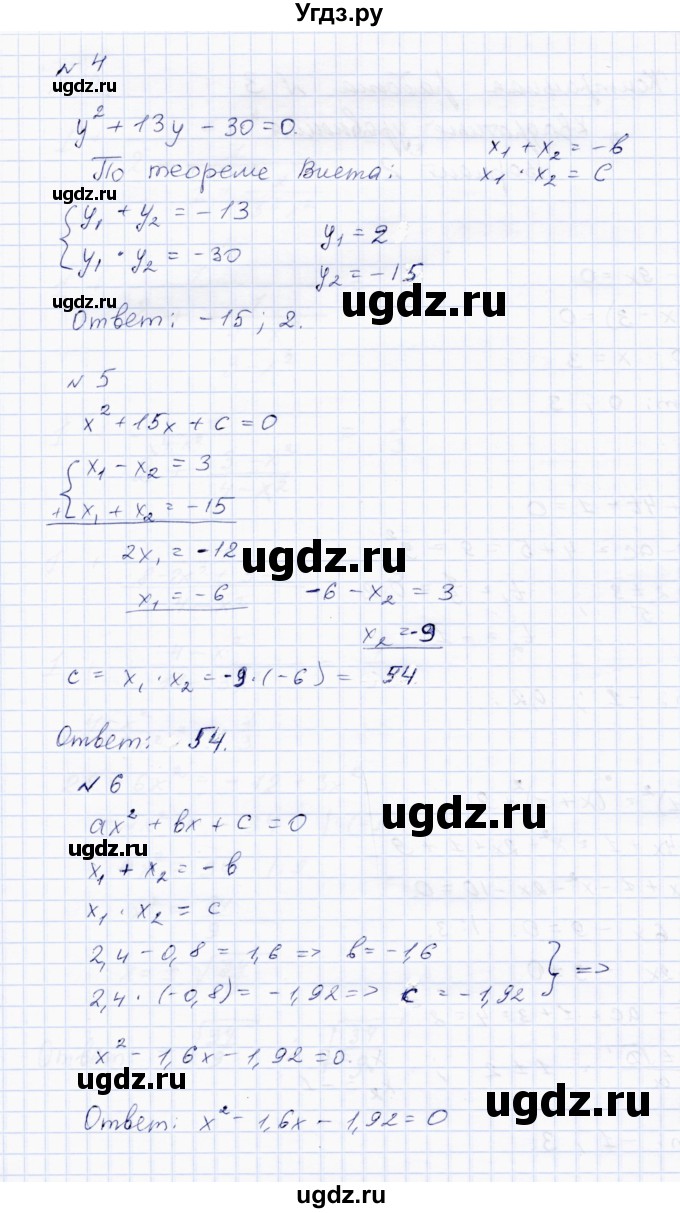 Угдз.ру
№ 4
ugdz.ru
y² + 13y − 30 = 0.
x₁ + x₂ = −в
По теореме Виета:
x₁ · x₂ = с
ugdz.ru
{ y₁ + y₂ = −13
y₁ · y₂ = −30
y₁ = 2
y₂ = −15
ugdz.ru
ugdz.ru
Ответ: −15; 2.
№ 5
x² + 15x + с = 0
ugdz.ru
{ x₁ − x₂ = 3
+ x₁ + x₂ = −15
2x₁ = −12
ugdz.ru
x₁ = −6
−6 − x₂ = 3
x₂ = −9
с = x₁ · x₂ = −9 · (−6) = 54
ugdz.ru
Ответ: 54.
№ 6
ax² + вx + с = 0
ugdz.ru
ugdz.ru
x₁ + x₂ = −в
x₁ · x₂ = с
2,4 − 0,8 = 1,6 => в = −1,6
2,4 · (−0,8) = −1,92 => с = −1,92 } =>
x² − 1,6x − 1,92 = 0.
ugdz.ru
ugdz.ru
Ответ: x² − 1,6x − 1,92 = 0
ugdz.ru